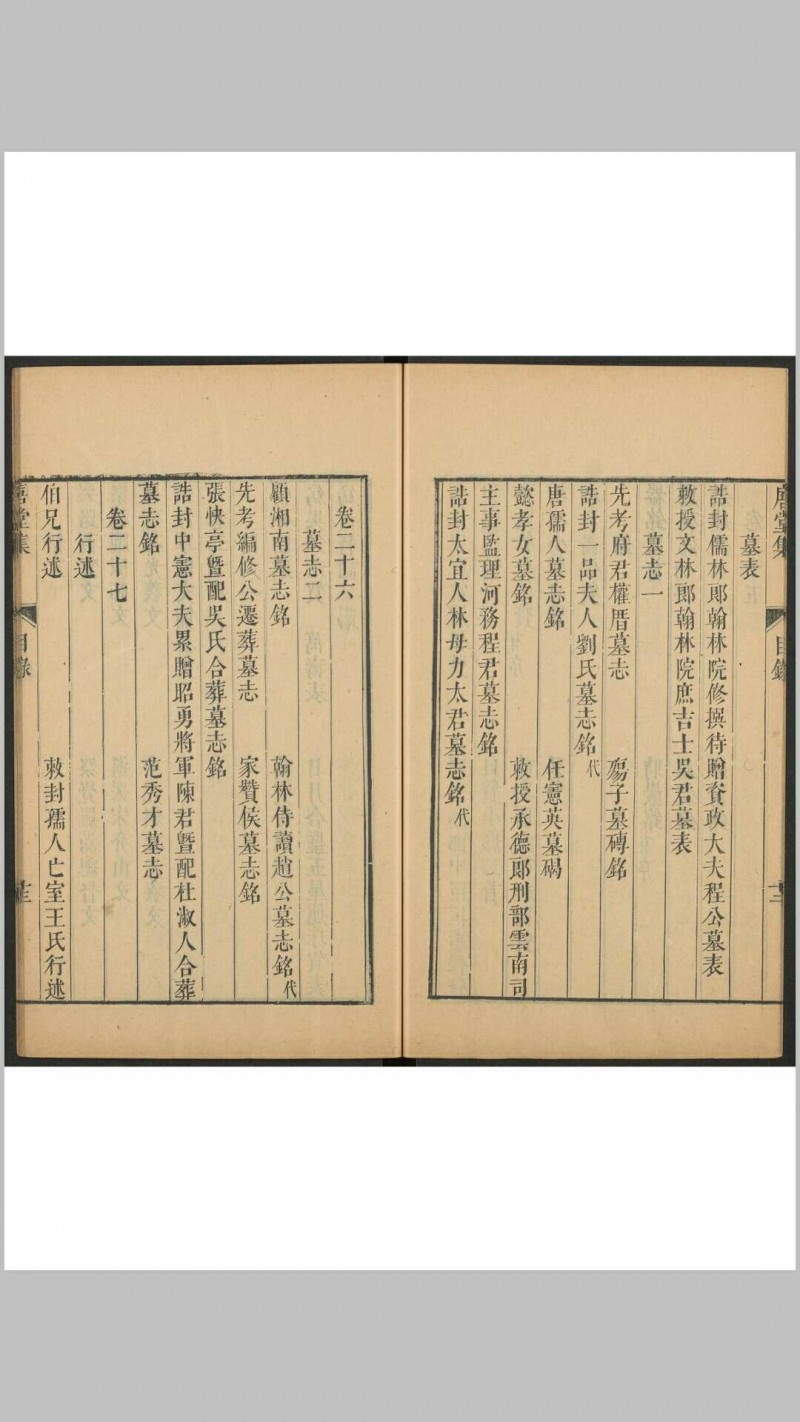 𢈪堂集 目錄 十二
墓表
誥封儒林郎翰林院修撰待贈資政大夫程公墓表
敕授文林郎翰林院庶吉士吳君墓表
墓志一
先考府君權厝墓志 殤子墓磚銘
誥封一品夫人劉氏墓志銘代
唐孺人墓志銘 任憲英墓碣
懿孝女墓銘 敕授承德郎刑部雲南司
主事監理河務程君墓志銘
誥封太宜人林母力太君墓志銘代
卷二十六
墓志二
顧湘南墓志銘 翰林侍讀趙公墓志銘代
先考編修公遷葬墓志 家贊侯墓志銘
張快亭暨配吳氏合葬墓志銘
誥封中憲大夫累贈昭勇將軍陳君暨配杜淑人合葬
墓志銘 范秀才墓志
卷二十七
行述
伯兄行述 敕封孺人亡室王氏行述
堂集 目錄